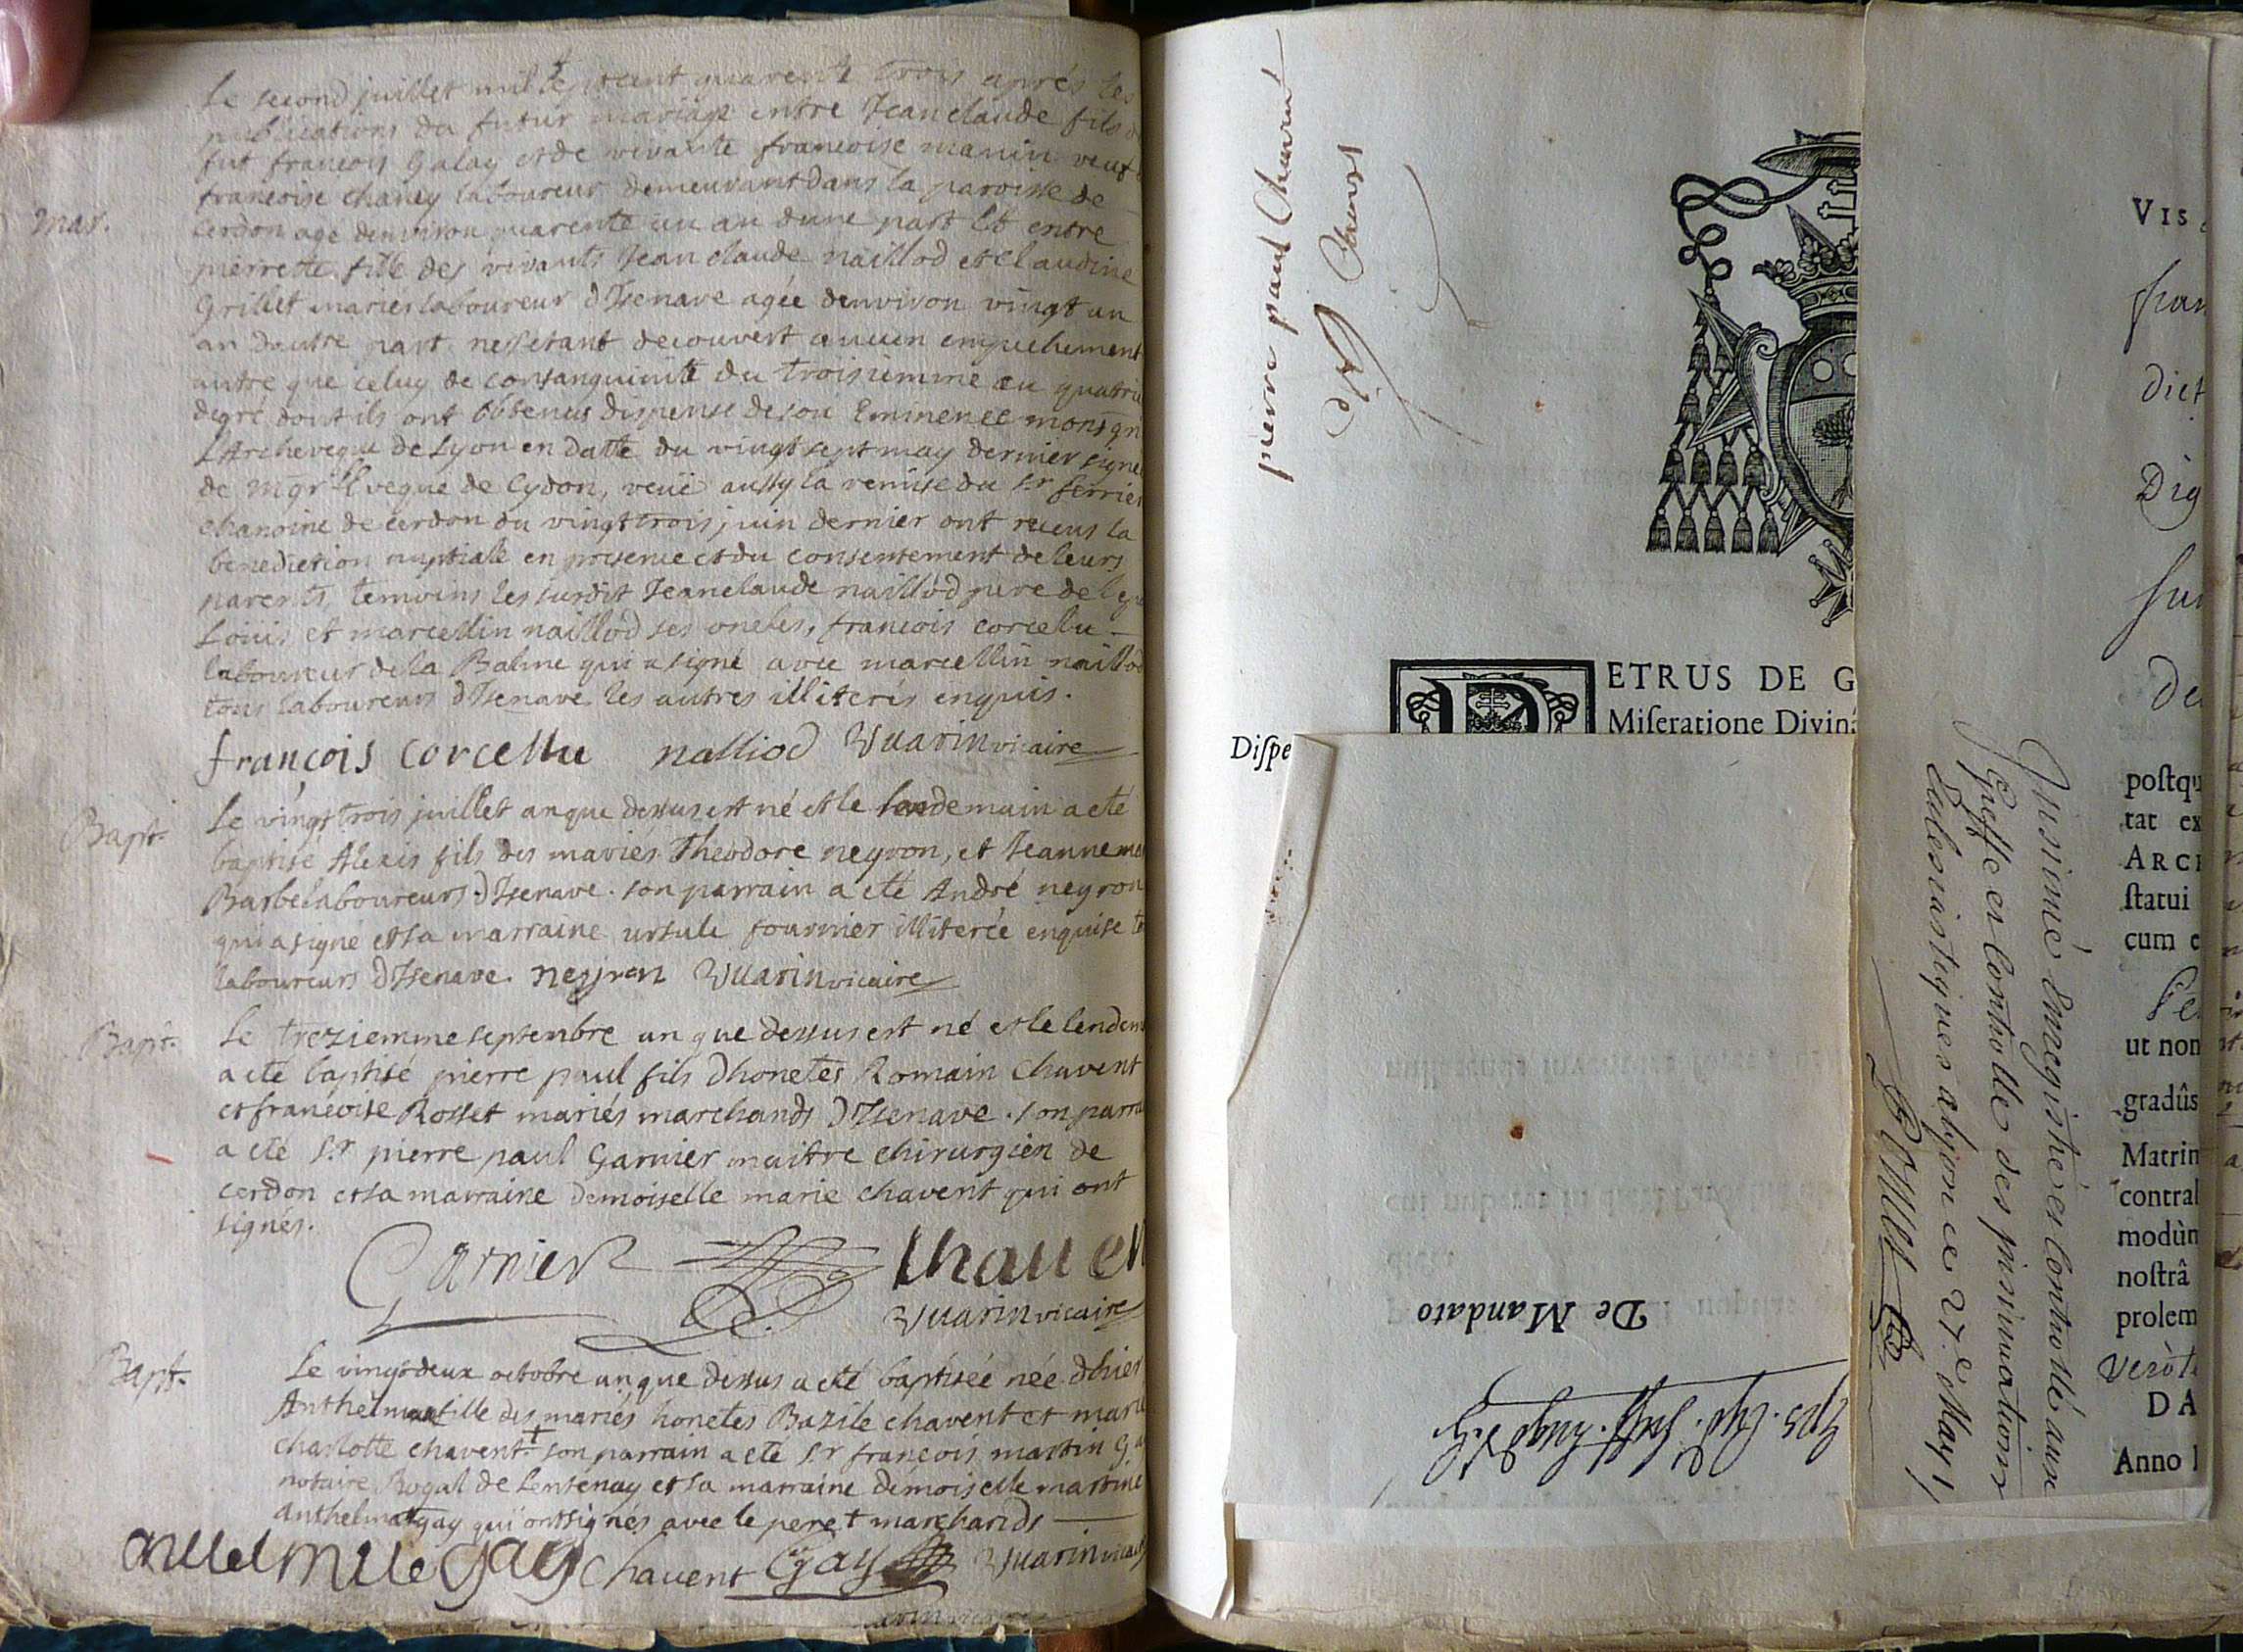 Le second juillet mil sept cent quarente trois aprés les
publications du futur mariage entre Jean claude fils
fut francois Galay et de vivante francoise manin veuf
francoise chaney laboureur demeurant dans la paroisse de
mar.
cerdon agé denviron quarente un an dune part Et entre
pierrette fille des vivants Jean claude naillod et claudine
Grillet mariés laboureur dIsenave agée denviron vingt un
an dautre part, nessetant decouvert aucun empechement
autre que celuy de consanguinité du troisiemme au quatrie
degré dont ils ont obtenus dispense de son Eminence monsgn
LArcheveque de Lyon en datte du vingt sept may dernier signe
de mgr lEveque de Cydon, veüe aussy la remise du sr ferrier
chanoine de cerdon du vingt trois juin dernier ont receus la
benediction nuptiale en presence et du consentement de leurs
parents, temoins les susdit Jean claude naillod pere de lep
Loüis et marcellin naillod ses oncles, francois corcelu
laboureur de la Balme qui a signé avec marcellin naillod
tous laboureurs dIsenave les autres illiterés enquis.
françois corcellu nalliod Vuarin vicaire
Bapt.
Le vingt trois juillet an que dessus est né et le lendemain a eté
baptisé Alexis fils des mariés Theodore neyron, et Jeanne me
Barbe laboureurs dIsenave. son parrain a eté André neyron
qui a signé et sa marraine ursule fournier illiterée enquise
laboureurs dIsenave. neyron Vuarin vicaire
Bapt.
Le treziemme septembre an que dessus est né et le lendem
a eté baptisé pierre paul fils dhonetes Romain Chavent
et francoise Rosset mariés marchands dIsenave. son parra
a eté Sr pierre paul Garnier maitre chirurgien de
cerdon et sa marraine demoiselle marie chavent qui ont
signés.
Garnier Chauen
Vuarin vicaire
Bapt.
Le vingt deux octobre an que dessus a eté baptisée née dhier
Anthelm fille des mariés honetes Bazile chavent et marie
charlotte chavent + son parrain a eté Sr francois martin G
notaire Royal de Lentenay et sa marraine demoiselle martine
anthelm gay qui ont signés avec le pere + marchands
gay Chauent Gay Vuarin vicai
pierre paul Chavent
ETRUS DE G
Miſeratione Divinâ
Diſpe
De Mandato
Insinué Enregistré et Controllé aux
Greffe et Controlle des insinuations
Ecclesiastiques a lyon ce 27.e May
VIS
fran
dict
Dig
de
poſtqu
tat ex
ARCH
ſtatui
cum e
ut non
gradûs
Matrim
contrah
modùm
noſtrâ
prolem
DA
Anno